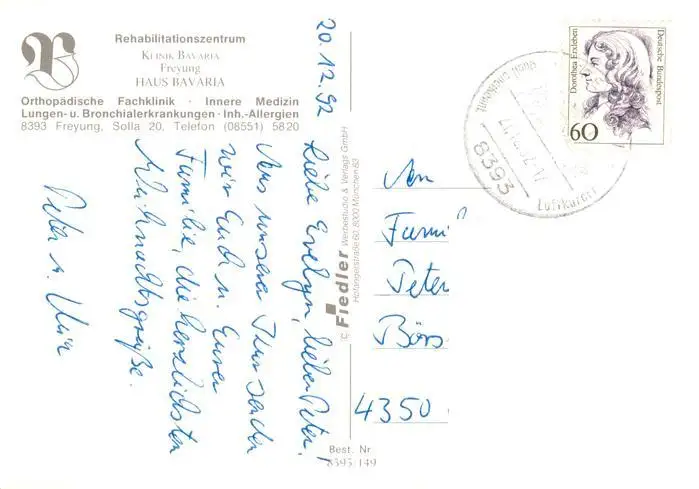 Rehabilitationszentrum
KLINIK BAVARIA
Freyung
HAUS BAVARIA
Orthopädische Fachklinik · Innere Medizin
Lungen- u. Bronchialerkrankungen · Inh.-Allergien
8393 Freyung, Solla 20, Telefon (08551) 5820
20.12.92
Liebe Evelyn, lieber Peter!
Aus unserer
wir Euch u. Eurer
Familie, die herzlichsten
Weihnachtsgrüße.
Peter u.
© Fiedler Werbestudio & Verlags GmbH
Hofangelstraße 60, 8000 München 83
Best. Nr
8393/149
Deutsche Bundespost
Dorothea Erxleben
60
8393
Luftkurort
An
Fami
Peter
Börs
4350